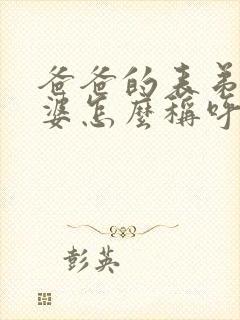 爸爸的表弟
婆怎麼稱呼
彭英